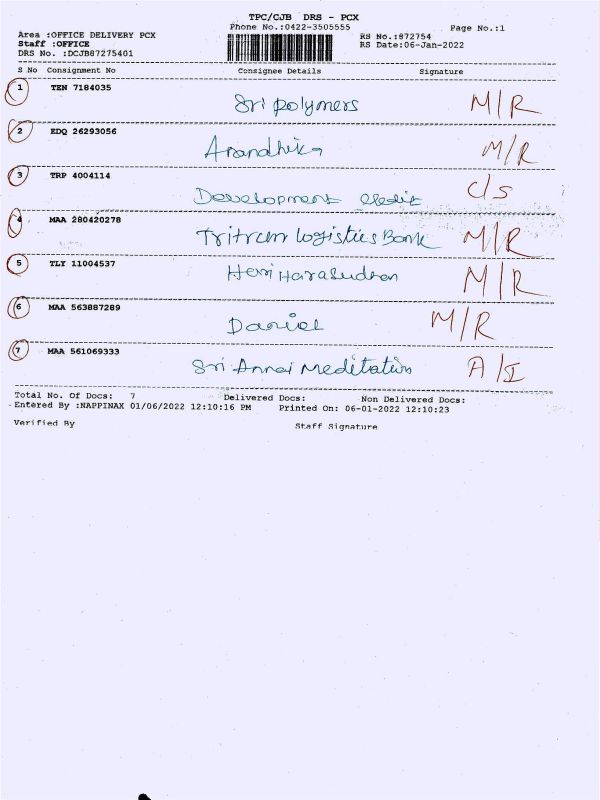 TPC/CJB DRS - PCX
Phone No.:0422-3505555
Page No.:1
Area :OFFICE DELIVERY PCX
Staff :OFFICE
DRS No. :DCJB87275401
RS No.:872754
RS Date:06-Jan-2022
S No Consignment No Consignee Details Signature
1 TEN 7184035
Sri polymers M/R
2 EDQ 26293056
M/R
3 TRP 4004114
Development C/S
4 MAA 280420278
logistics Bank M/R
5 TLY 11004537
M/R
6 MAA 563887289
Daniel M/R
7 MAA 561069333
Sri Annai Meditation A/I
Total No. Of Docs: 7 Delivered Docs: Non Delivered Docs:
Entered By :NAPPINAX 01/06/2022 12:10:16 PM Printed On: 06-01-2022 12:10:23
Verified By Staff Signature